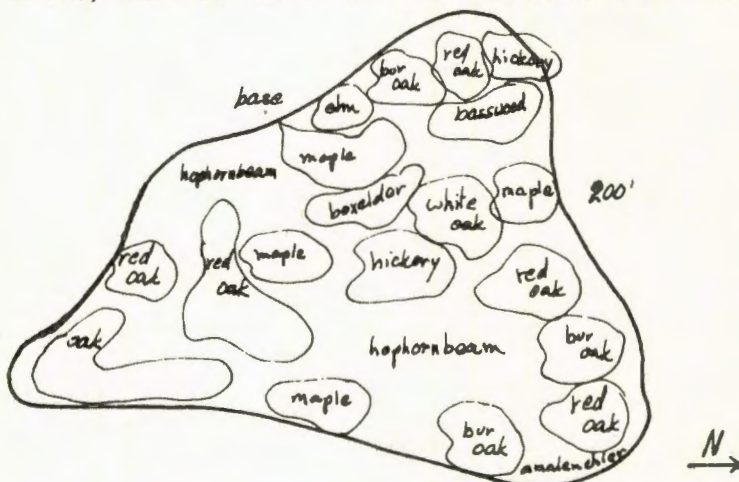 red
oak
hickory
bur
oak
base
elm
basswood
maple
hophornbeam
boxelder
white
oak
maple
200'
red
oak
red
oak
maple
hickory
red
oak
oak
hophornbeam
bur
oak
maple
red
oak
bur
oak
amalenchier
N